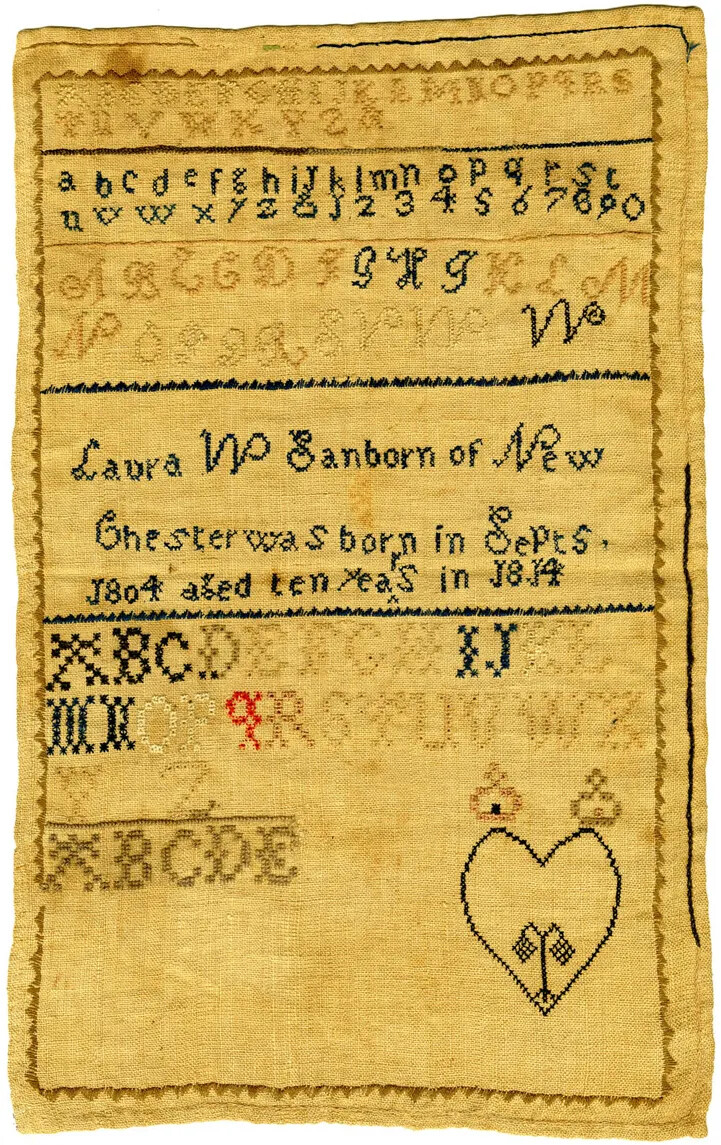 A B C D E F G H I J K L M N O P Q R S
T U V W X Y Z &
a b c d e f g h i j k l m n o p q r s t
u v w x y z & J 2 3 4 5 6 7 8 9 0
A B C D G H J K L M
N O P Q W
Laura W Sanborn of New
Chester was born in Septs.
1804 aged ten years in 1814
A B C D E F G H I J K L
M N O P q R S T U V W X
Y Z
A B C D E